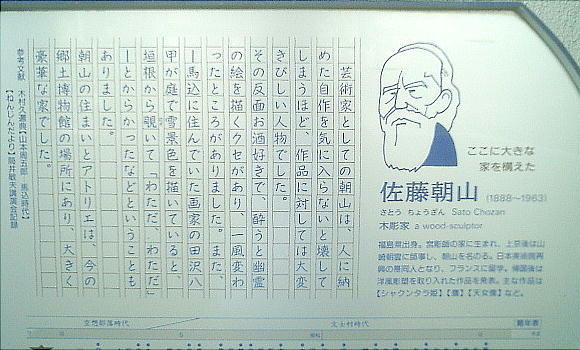 ここに大きな
家を構えた
佐藤朝山 (1888〜1963)
さとう ちょうざん Sato Chozan
木彫家 a wood-sculptor
福島県出身。宮彫師の家に生まれ、上京後は山
崎朝雲に師事し、朝山を名のる。日本美術院再
興の際同人となり、フランスに留学。帰国後は
洋風彫塑を取り入れた作品を発表。主な作品は
【シャクンタラ姫】【鷹】【天女像】など。
芸術家としての朝山は、人に納
めた自作を気に入らないと壊して
しまうほど、作品に対しては大変
きびしい人物でした。
その反面お酒好きで、酔うと幽霊
の絵を描くクセがあり、一風変わ
ったところがありました。また、
馬込に住んでいた画家の田沢八
甲が庭で雪景色を描いていると、
垣根から覗いて「わただ、わただ」
とからかったなどということも
ありました。
朝山の住まいとアトリエは、今の
郷土博物館の場所にあり、大きく
豪華な家でした。
参考文献 木村久邇典【山本周五郎 馬込時代】
【ねんじんだより】筒井敏夫講演会記録
空想部落時代
文士村時代
略年表